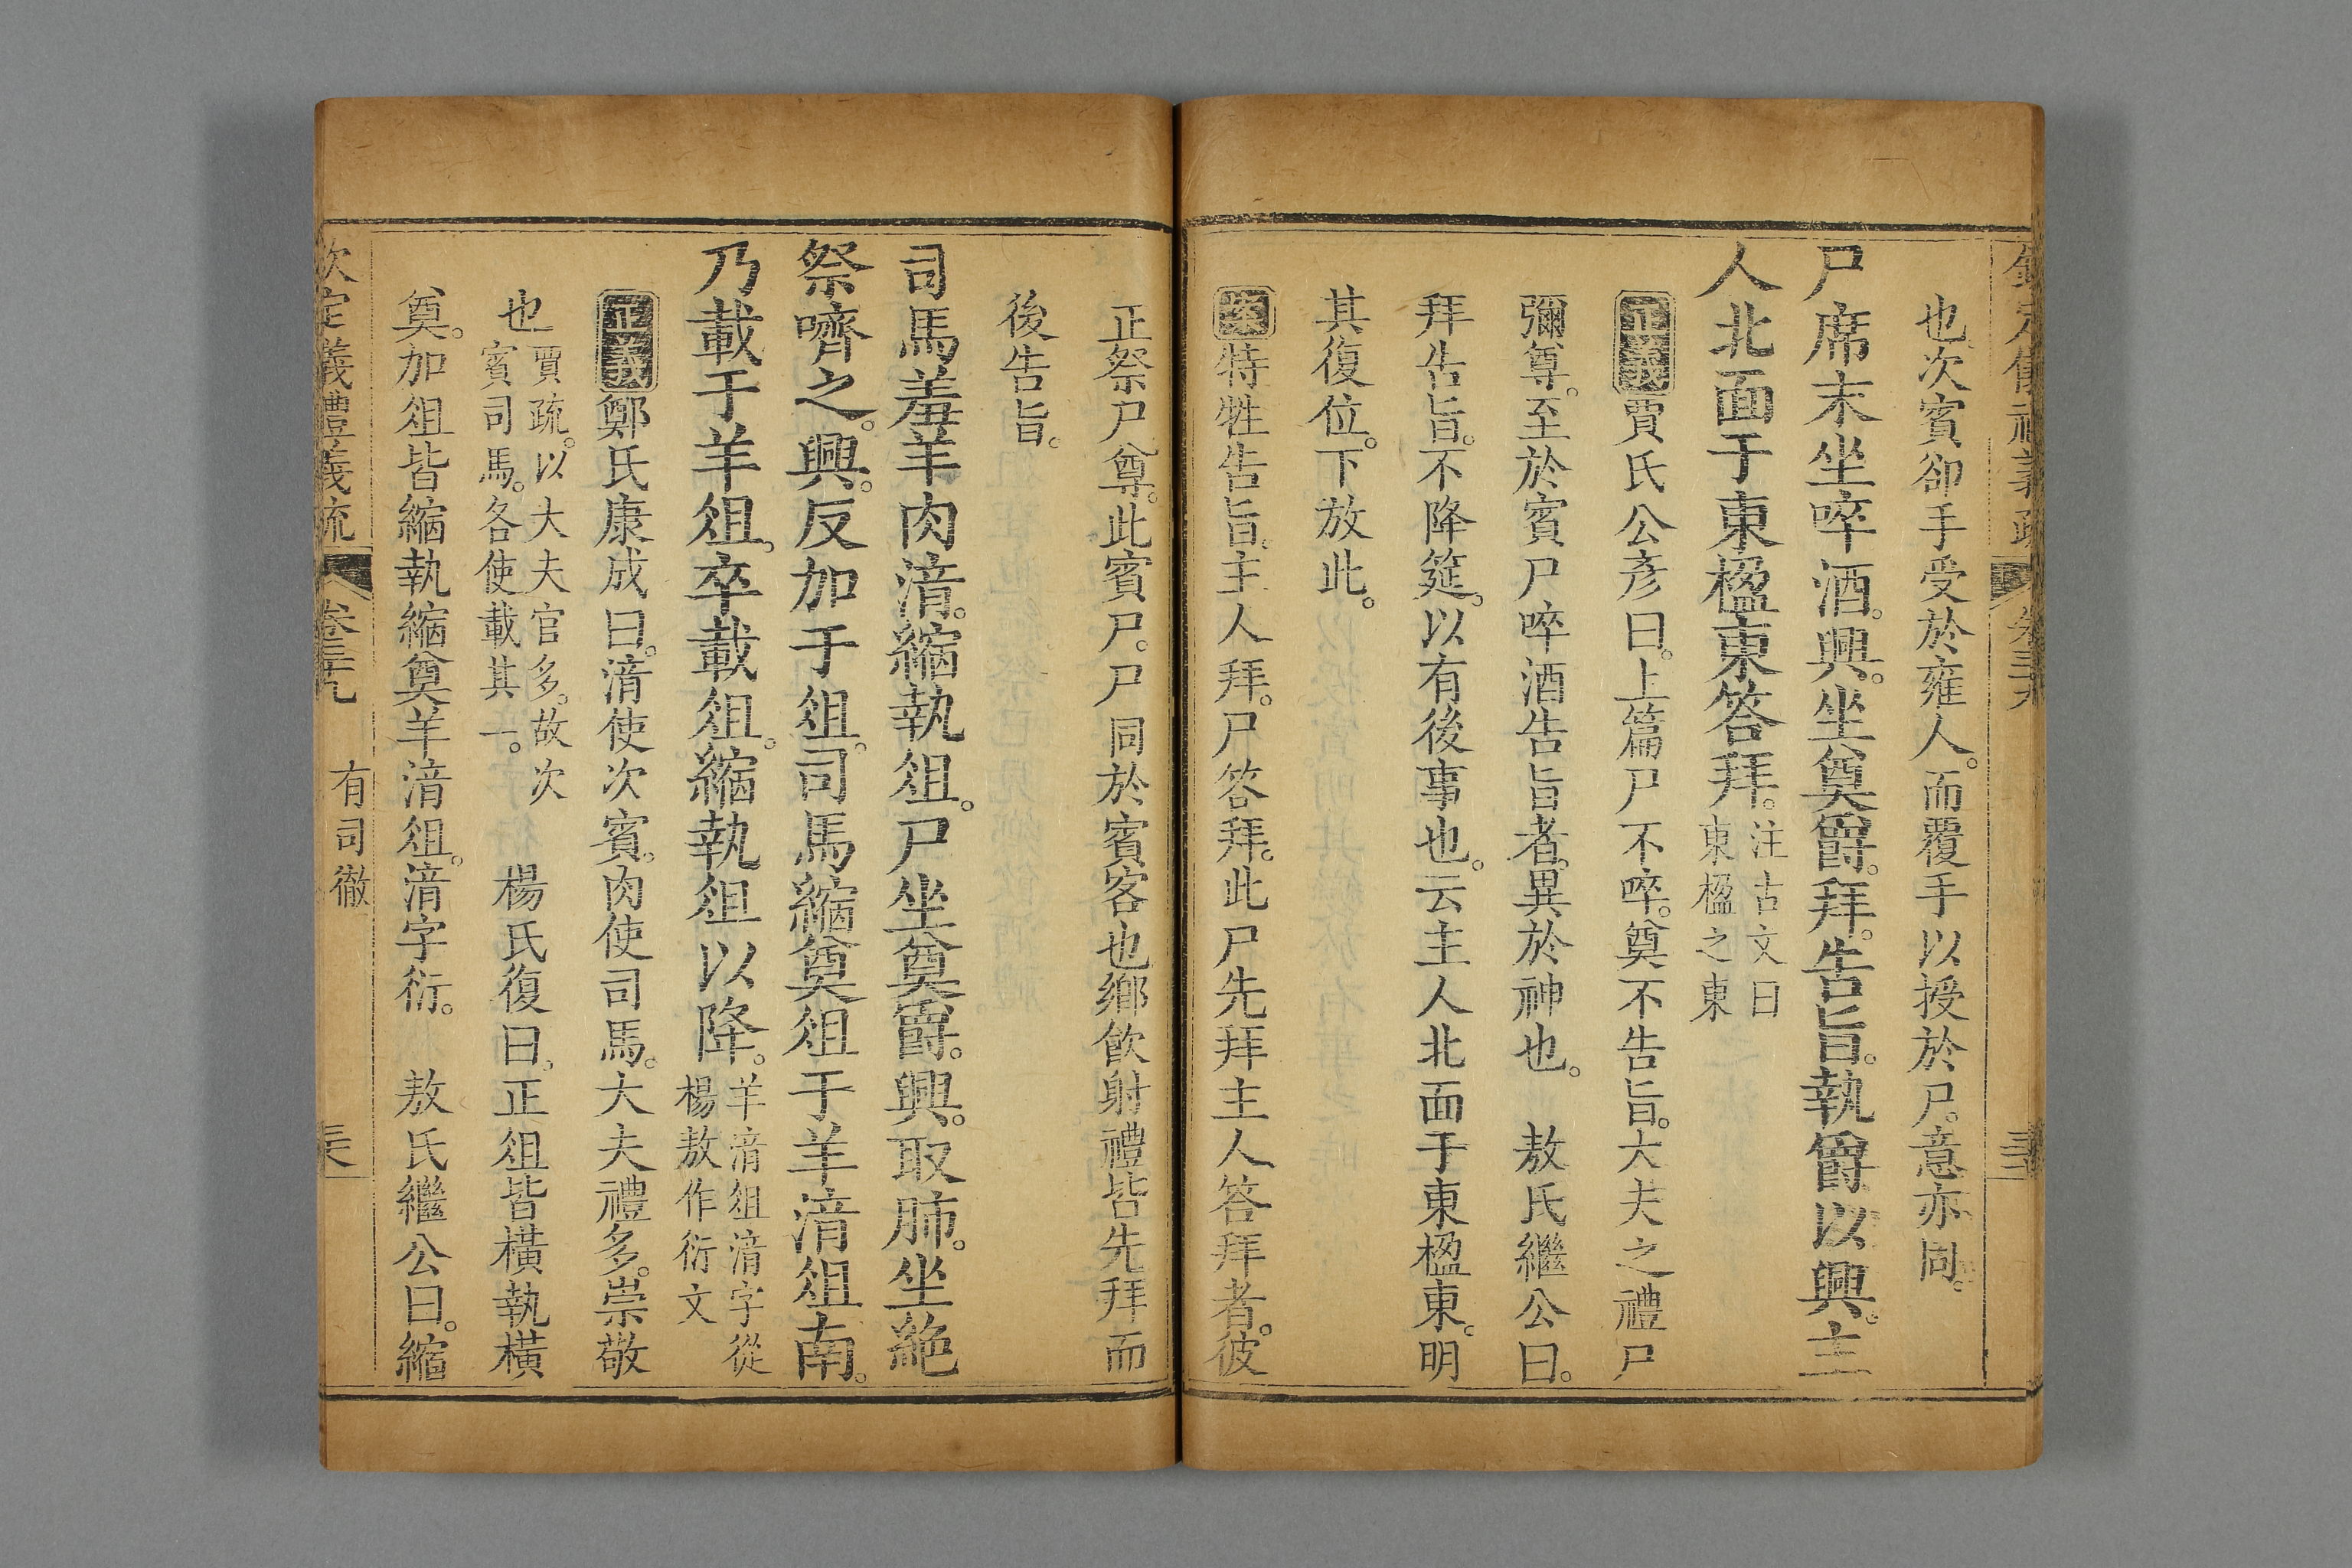 也次賓卻手受於雍人。而覆手以授於尸。意亦同。
尸席末坐啐酒。興。坐奠爵。拜。告旨。執爵以興。主
人北面于東楹東答拜。注古文曰
東楹之東
正義賈氏公彥曰。上篇尸不啐。奠不告旨。大夫之禮尸
彌尊。至於賓尸啐酒告旨者。異於神也。 敖氏繼公曰。
拜告旨。不降筵。以有後事也。云主人北面于東楹東。明
其復位。下放此。
案特牲告旨。主人拜。尸答拜。此尸先拜主人答拜者。彼
正祭尸尊。此賓尸。尸同於賓客也鄉飲射禮皆先拜而
後告旨。
司馬羞羊肉湆。縮執俎。尸坐奠爵。興。取肺。坐絶
祭嚌之。興。反加于俎。司馬縮奠俎于羊湆俎南。
乃載于羊俎。卒載俎。縮執俎以降。羊湆俎湆字從
楊敖作衍文
正義鄭氏康成曰。湆使次賓。肉使司馬。大夫禮多。崇敬
也賈疏。以大夫官多。故次
賓司馬。各使載其一。 楊氏復曰。正俎皆橫執橫
奠。加俎皆縮執縮奠羊湆俎。湆字衍。 敖氏繼公曰。縮
欽定儀禮義疏 卷三十九 有司徹